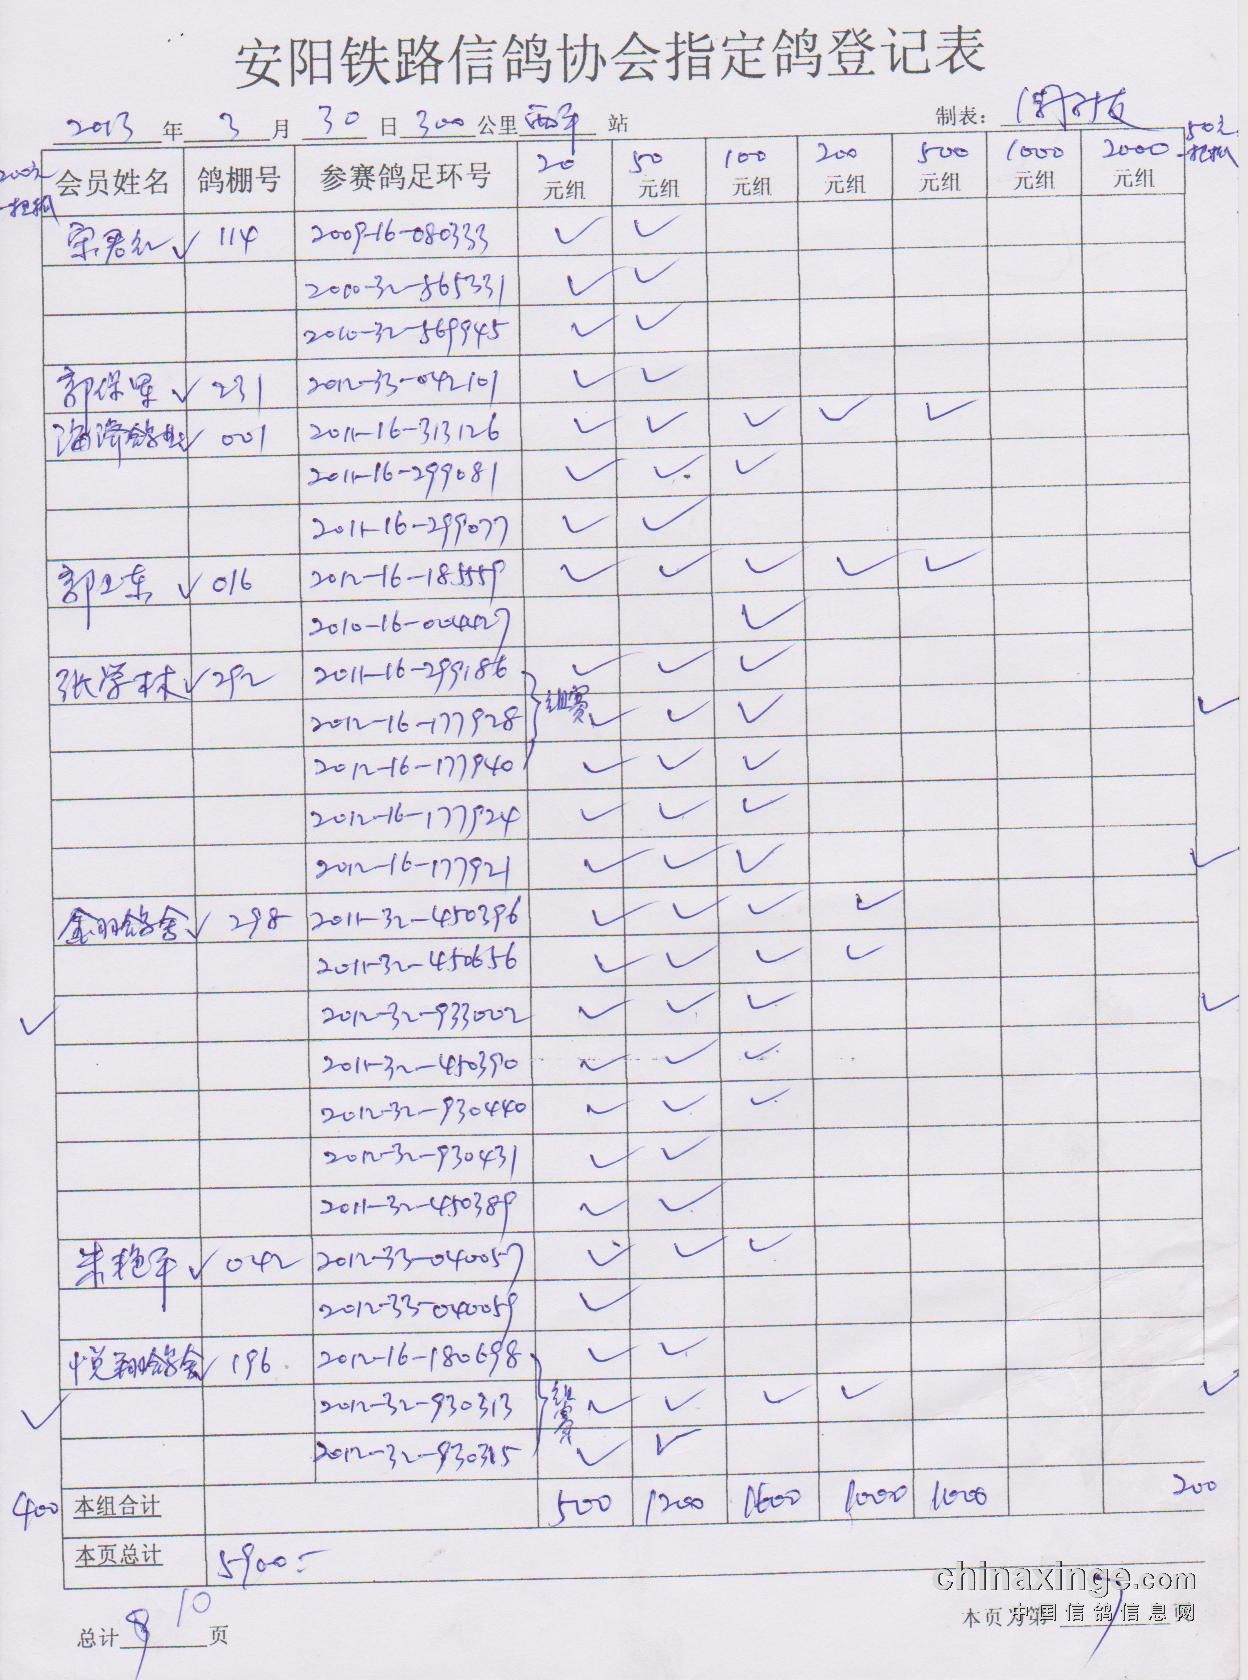 安阳铁路信鸽协会指定鸽登记表
2013 年 3 月 30 日 300 公里 西平 站 制表：
200元 一把抓 会员姓名 鸽棚号 参赛鸽足环号 20元组 50元组 100元组 200元组 500元组 1000元组 2000元组 50元 一把抓
宋君红 ✓ 114 2009-16-080333 ✓ ✓
2010-32-865331 ✓ ✓
2010-32-569945 ✓ ✓
郭保军 ✓ 231 2012-33-042101 ✓ ✓
海降鸽业 ✓ 001 2011-16-313126 ✓ ✓ ✓ ✓ ✓
2011-16-299081 ✓ ✓ ✓
2011-16-299077 ✓ ✓
郭卫东 ✓ 016 2012-16-185559 ✓ ✓ ✓ ✓ ✓
2010-16-004427 ✓
张学林 ✓ 292 2011-16-299186 ✓ ✓ ✓
2012-16-177928 组赛 ✓ ✓ ✓ ✓
2012-16-177940 ✓ ✓ ✓
2012-16-177924 ✓ ✓ ✓
2012-16-177921 ✓ ✓ ✓ ✓
金羽鸽舍 ✓ 298 2011-32-450396 ✓ ✓ ✓ ✓
2011-32-450656 ✓ ✓ ✓ ✓
✓ 2012-32-933002 ✓ ✓ ✓ ✓
2011-32-450390 ✓ ✓ ✓
2012-32-930440 ✓ ✓ ✓
2012-32-930431 ✓ ✓
2011-32-450389 ✓ ✓
朱艳平 ✓ 042 2012-33-040057 ✓ ✓ ✓
2012-33-040059 ✓
悦翔鸽舍 196 2012-16-180698 ✓ ✓
✓ 2012-32-930313 组赛 ✓ ✓ ✓ ✓ ✓
2012-32-930315 ✓ ✓
400 本组合计 500 1200 1600 1000 1000 200
本页总计 5900
总计 9 10 页
本页为第 页
chinaxinge.com
中国信鸽信息网